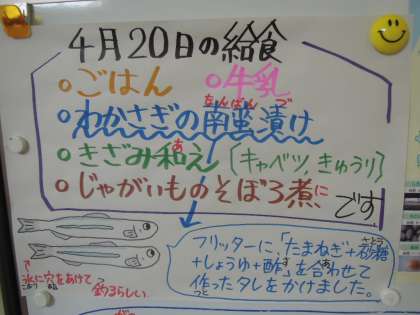 4月20日の給食
○ごはん ○牛乳
○わかさぎの南蛮漬け
なんばん づ
○きざみ和え〔キャベツ,きゅうり〕
あ
○じゃがいものそぼろ煮です
に
フリッターに、「たまねぎ+砂糖
さとう
+しょうゆ+酢」を合わせて
す あ
作ったタレをかけました。
つく
↑氷に穴をあけて
こおり あな
釣るらしい
つ